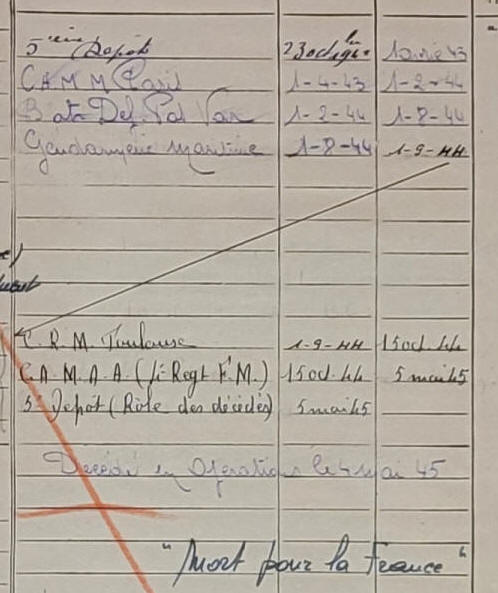 5ème Dépôt 23 oct 42 1 avril 43
C.A.M.M. Paris 1-4-43 1-2-44
Bat Def Pal Var 1-2-44 1-8-44
Gendarmerie Maritime 1-8-44 1-9-44
C.R.M. Toulouse 1-9-44 15 oct. 44
C.A.M.A.A. (1er Regt F.M.) 15 oct. 44 5 mai 45
5e Dépôt (Rôle des décédés) 5 mai 45
Décédé en Opérations le 4 mai 45
"Mort pour la France"